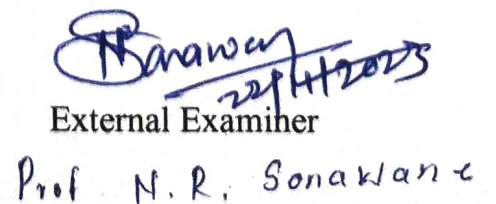 Sonawane
22/4/2025
External Examiner
Prof N. R. Sonawane